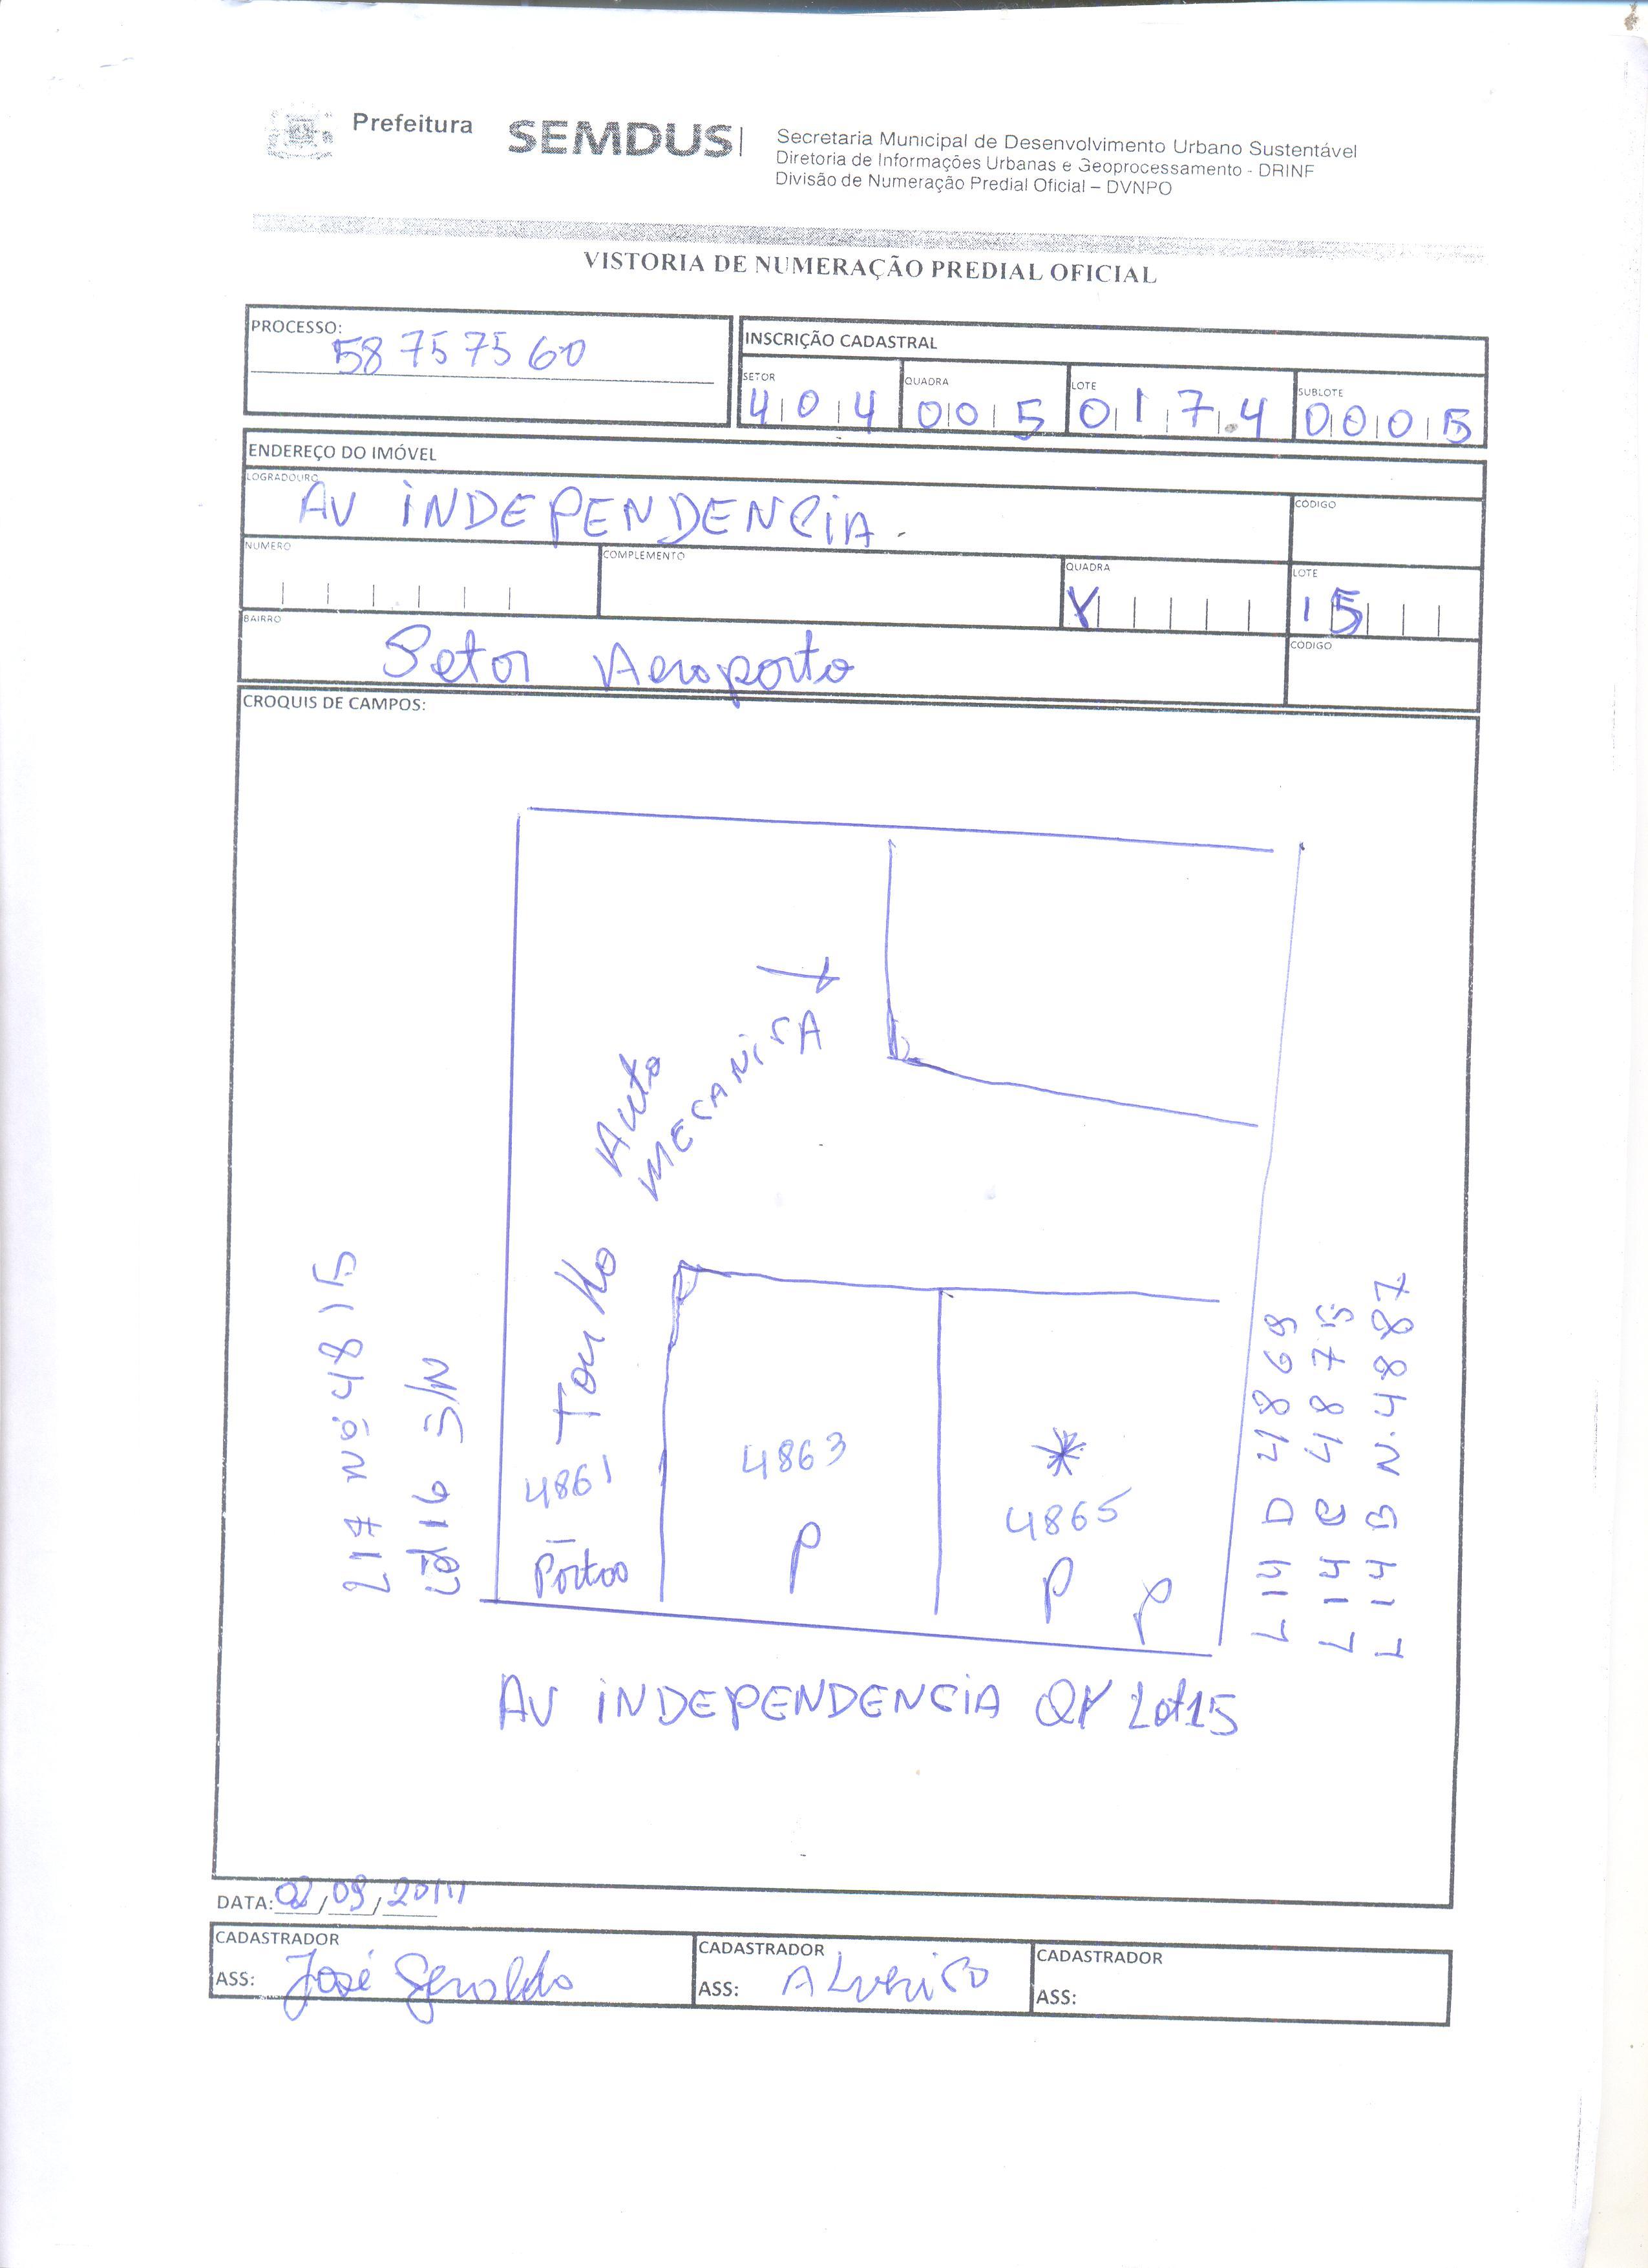 Prefeitura SEMDUS
Secretaria Municipal de Desenvolvimento Urbano Sustentável
Diretoria de Informações Urbanas e Geoprocessamento - DRINF
Divisão de Numeração Predial Oficial – DVNPO
VISTORIA DE NUMERAÇÃO PREDIAL OFICIAL
PROCESSO:
58 75 75 60
INSCRIÇÃO CADASTRAL
SETOR QUADRA LOTE SUBLOTE
404 005 0174 0005
ENDEREÇO DO IMÓVEL
LOGRADOURO CÓDIGO
AV INDEPENDENCIA.
NUMERO COMPLEMENTO QUADRA LOTE
Y 15
BAIRRO CÓDIGO
Setor Aeroporto
CROQUIS DE CAMPOS:
Auto
MECANICA
4861
Portão
4863
P
4865
P P
L17 Nº 4815
Lot 16 S/N
L14 D 4869
L14 C 4875
L14 B N. 4887
AV INDEPENDENCIA QY Lot15
DATA: 02/09/2014
CADASTRADOR CADASTRADOR CADASTRADOR
ASS: José Geraldo ASS: ASS: